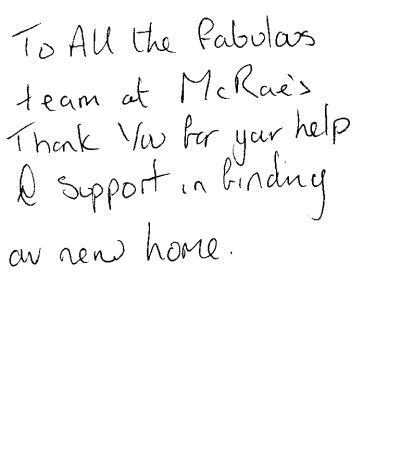 To All the fabulous
team at McRae's
Thank You for your help
& support in finding
our new home.